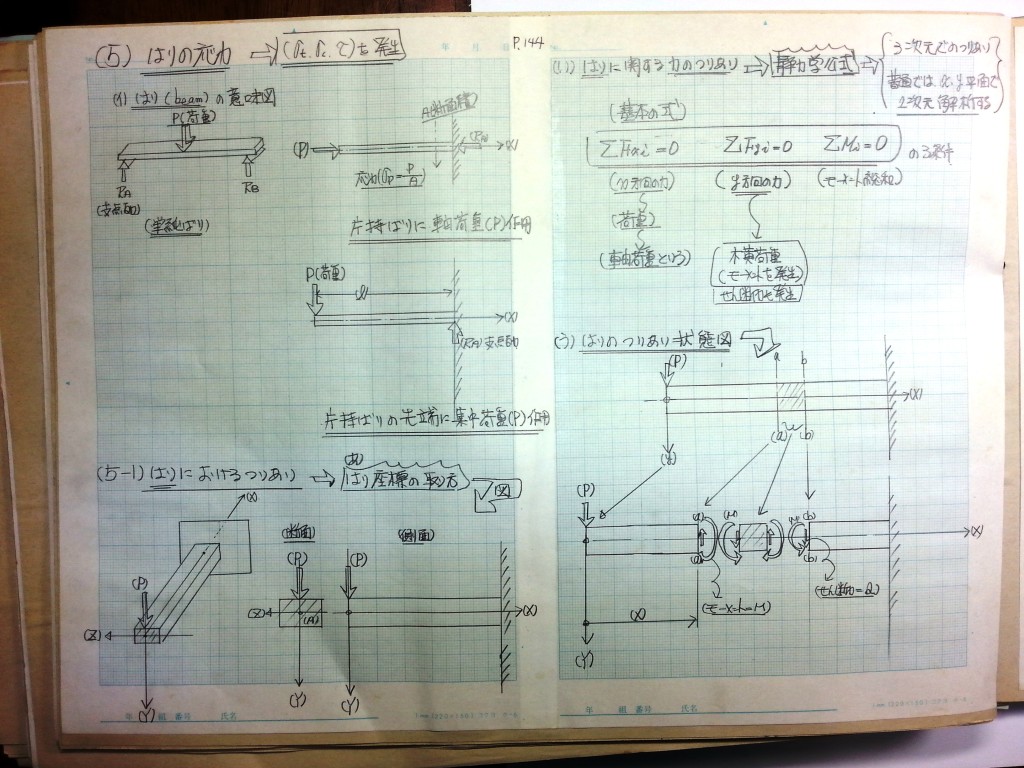 P.144
(5) はりの応力 ⇒ (σt, σc, τ)を発生
(イ) はり(beam)の意味図
P(荷重)
RA
(支点反力)
RB
(単純ばり)
A(断面積)
(P)
(X)
応力(σp=P/A)
片持ばりに軸荷重(P)作用
P(荷重)
l
(X)
支点反力
片持ばりの先端に集中荷重(P)作用
(5-1) はりにおけるつりあい ⇒ (あ) はり座標の取り方
図
(X)
(P)
(Z)
(Y)
(断面)
(P)
(Z)
(A)
(Y)
(側面)
(P)
(X)
(Y)
年 組 番号 氏名
年 月 日
(い) はりに関する力のつりあい ⇒ 静力学公式 ⇒
3次元でのつりあい
普通では x, y 平面で
2次元解析する
(基本の式)
ΣFxi=0 ΣFyi=0 ΣMi=0 の3条件
(x方向の力) (y方向の力) (モーメント総和)
(荷重)
(軸荷重という)
横荷重
(モーメントを発生)
せん断力も発生
(う) はりのつりあい状態図
(P)
a b
(X)
(a) (b)
(Y)
(P)
(a) (M) (M) (b)
(X)
(a) (b)
(モーメント=M)
(せん断力=Q)
(X)
(Y)
年 組 番号 氏名